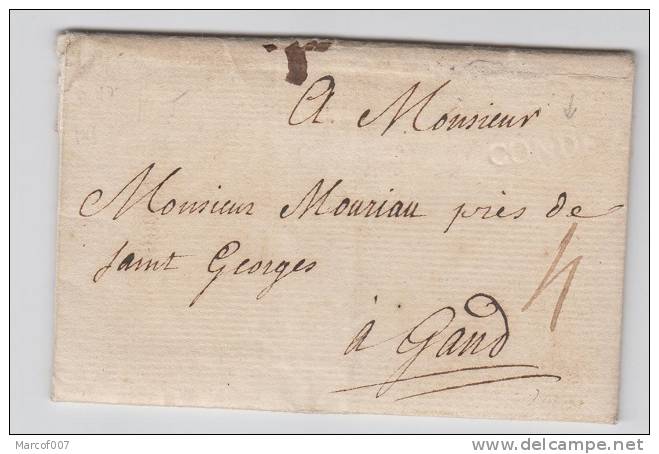 A Monsieur
Monsieur Mouriau près de
saint Georges
à Gand
4
Marcof007
delcampe.net